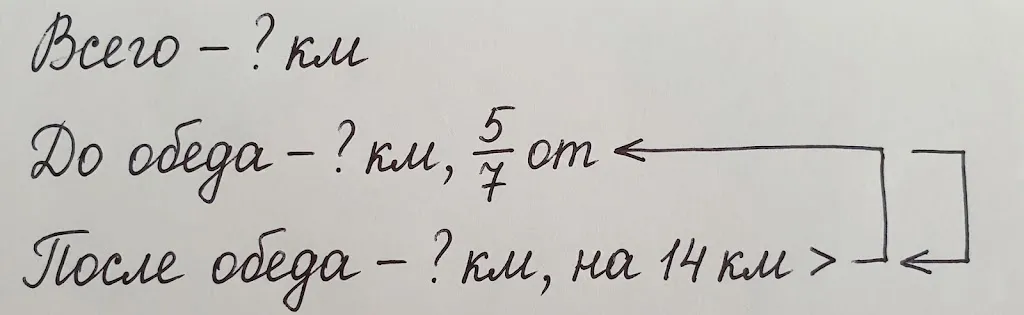 Всего – ? км
До обеда – ? км, 5/7 от
После обеда – ? км, на 14 км >